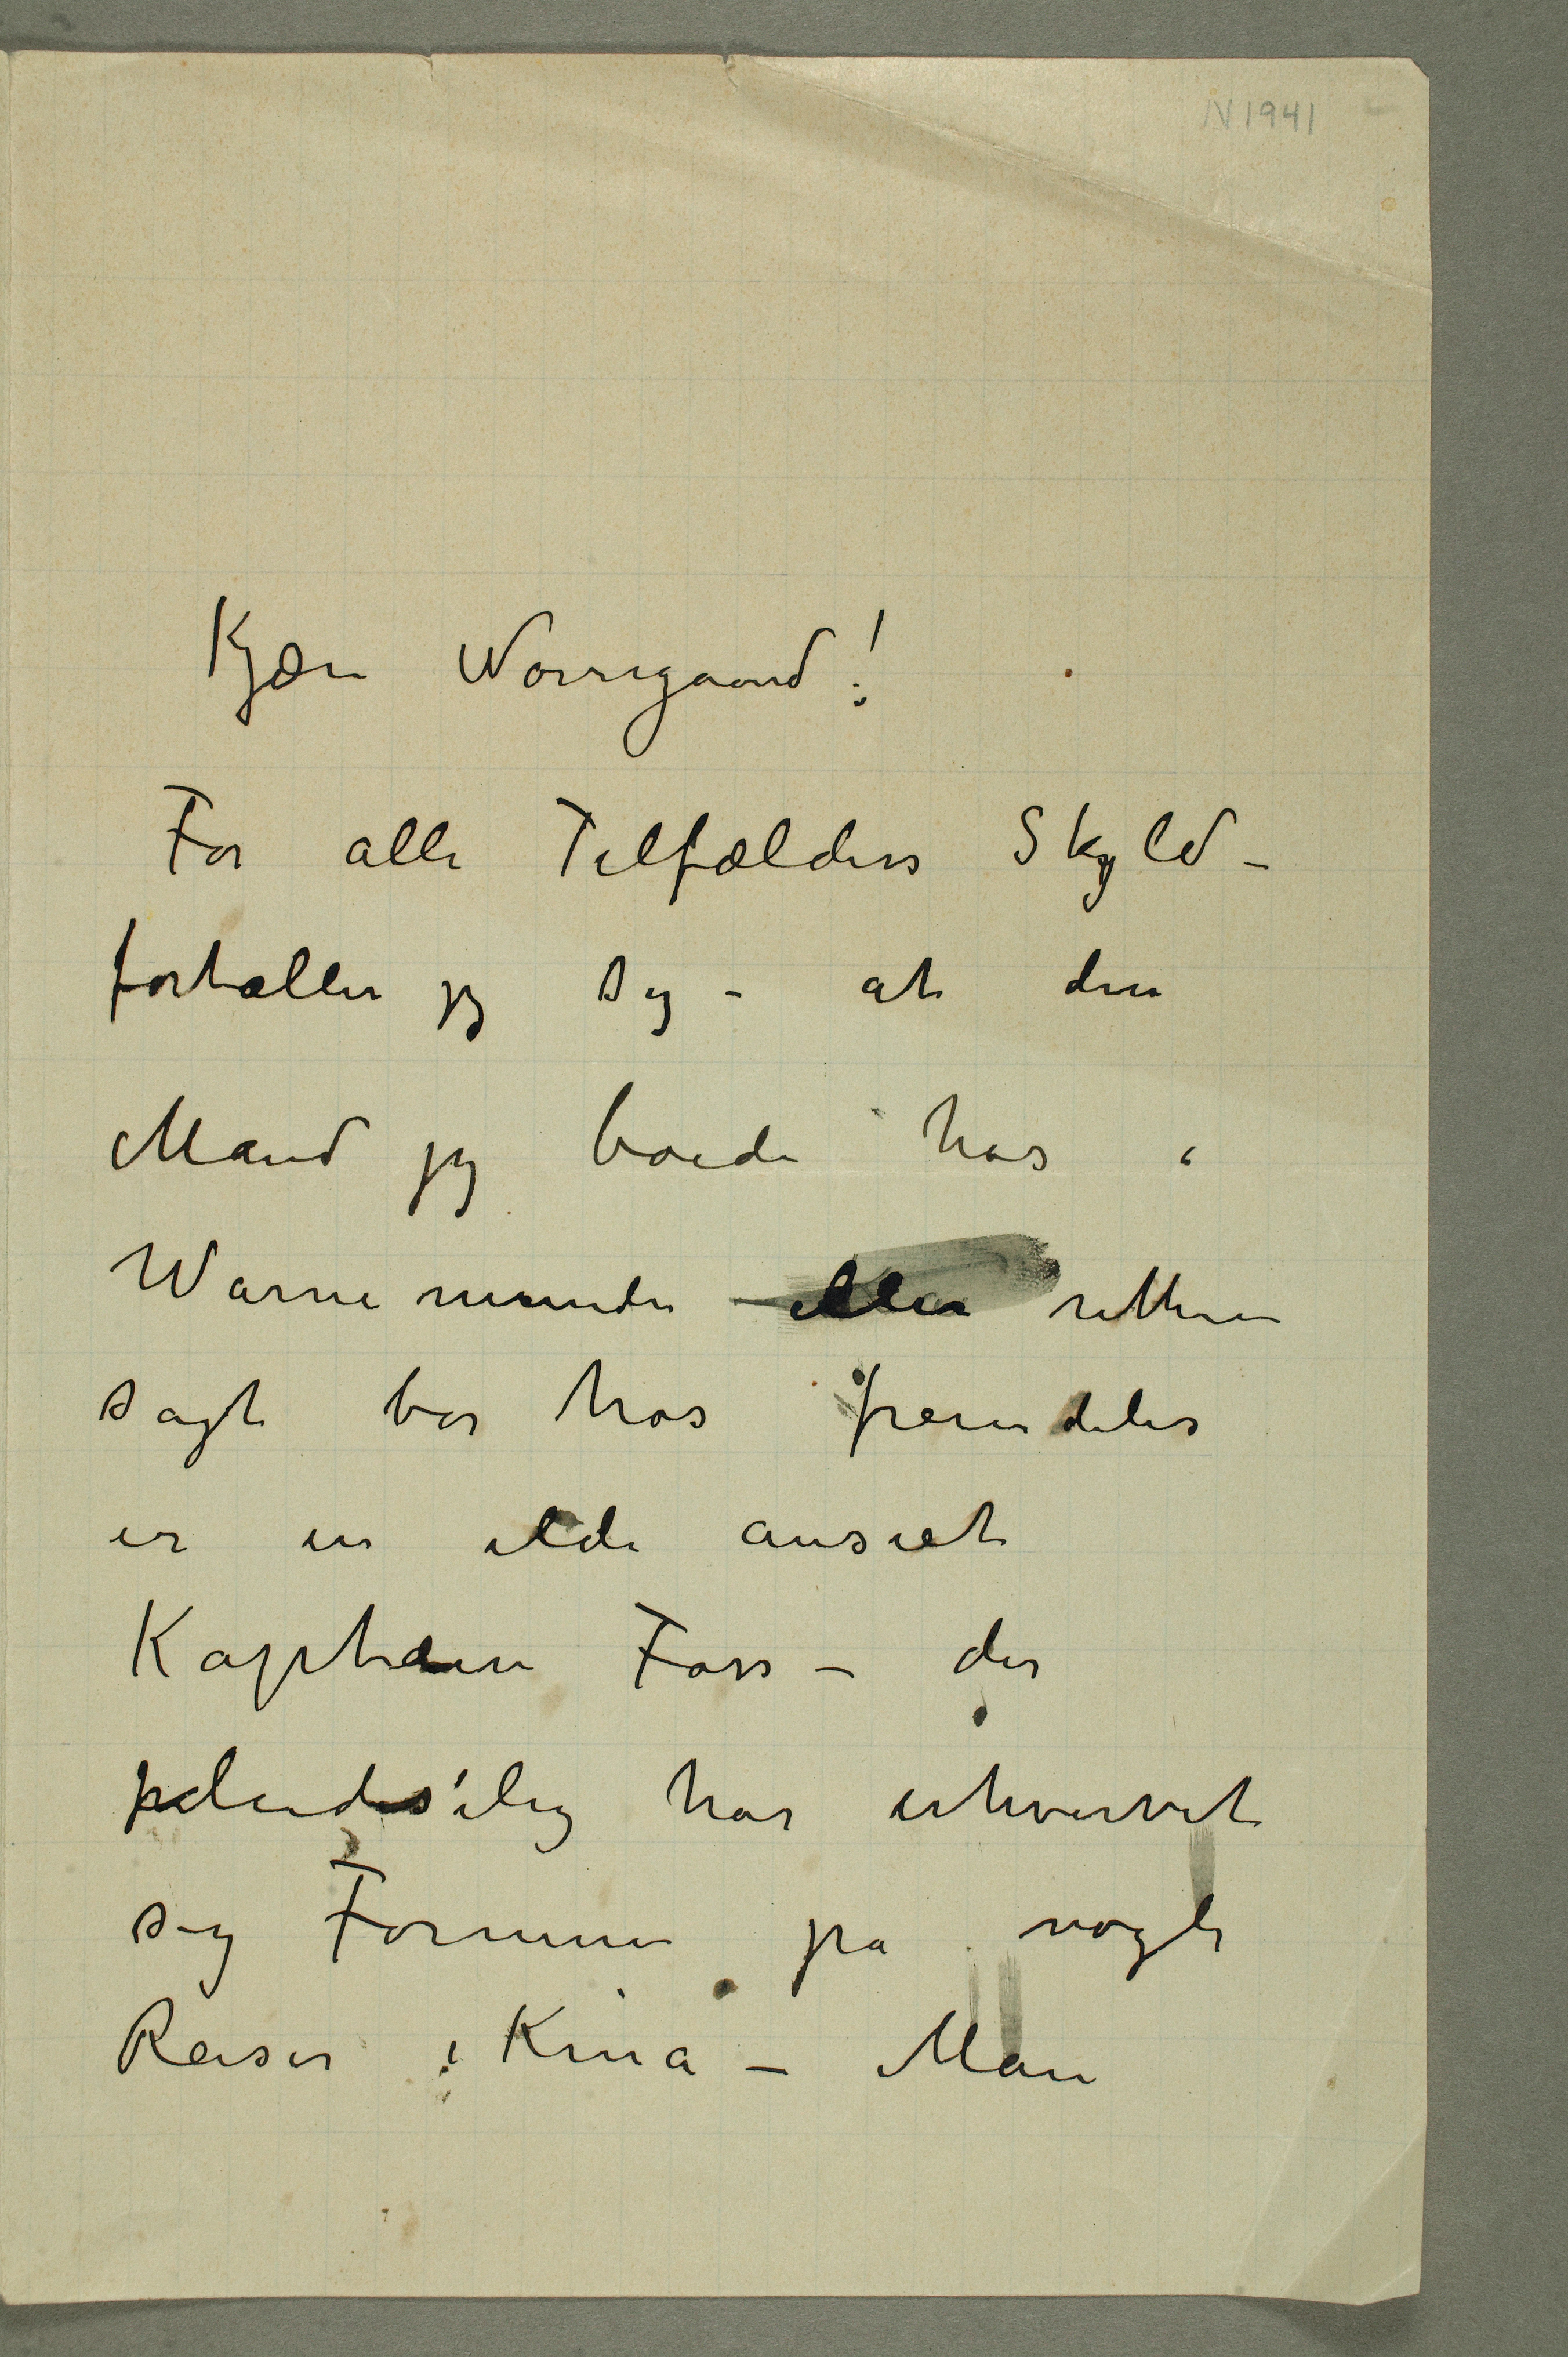 N 1941
Kjære Nørregaard!
For alle Tilfælders Skyld –
fortæller jeg dig – at den
Mand jeg boede hos i
Warnemünde – eller rettere
sagt bor hos fremdeles
er en ilde anseet
Kaptain Foss – der
pludselig har erhvervet
sig Formue på nogle
Reiser i Kina – Man